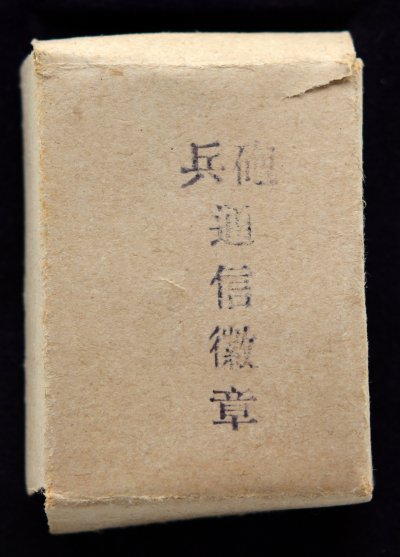 砲兵
通信徽章